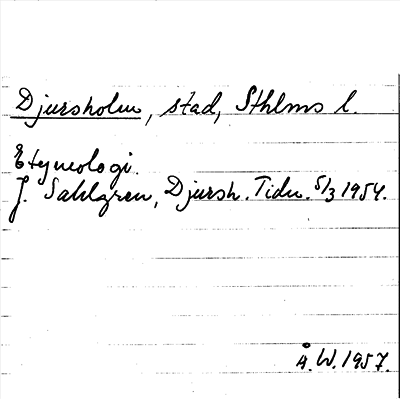 Djursholm, stad, Sthlms l.
Etymologi.
J. Sahlgren, Djursh. Tidn. 5/3 1954.
Å.W. 1957.